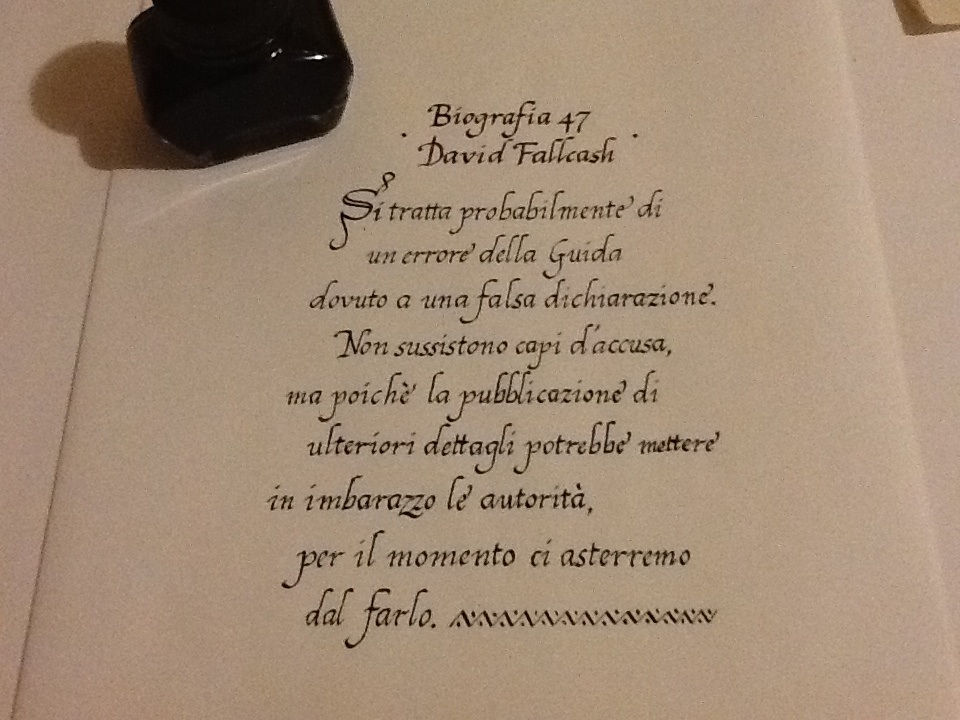 Biografia 47
. David Fallcash .
Si tratta probabilmente di
un errore della Guida
dovuto a una falsa dichiarazione.
Non sussistono capi d'accusa,
ma poichè la pubblicazione di
ulteriori dettagli potrebbe mettere
in imbarazzo le autorità,
per il momento ci asterremo
dal farlo.